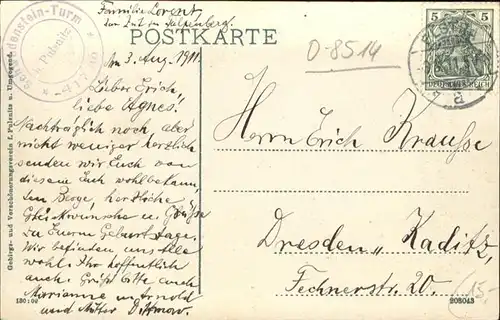 Familie Lorenz
POSTKARTE
Schwedenstein-Turm
b. Pulsnitz
d. 3. Aug. 1911.
Lieber Erich,
liebe Agnes!
Nachträglich noch, aber
nicht weniger herzlich
senden wir Euch von
diesem Euch wohlbekann-
ten Berge, herzliche
Glückwünsche u. Grüße
zu Eurem Geburtstage.
Wir befinden uns alle
wohl. Ihr hoffentlich
auch. Grüßt bitte auch
Marianne u. Arnold
und Mutter Dittmar.
130:09
Gebirgs- und Verschönerungsverein f. Pulsnitz u. Umgegend.
D-8514
5 5
DEUTSCHES REICH
a
Herrn Erich Krausse
Dresden Kaditz,
Fechnerstr. 20.
15.-
208043